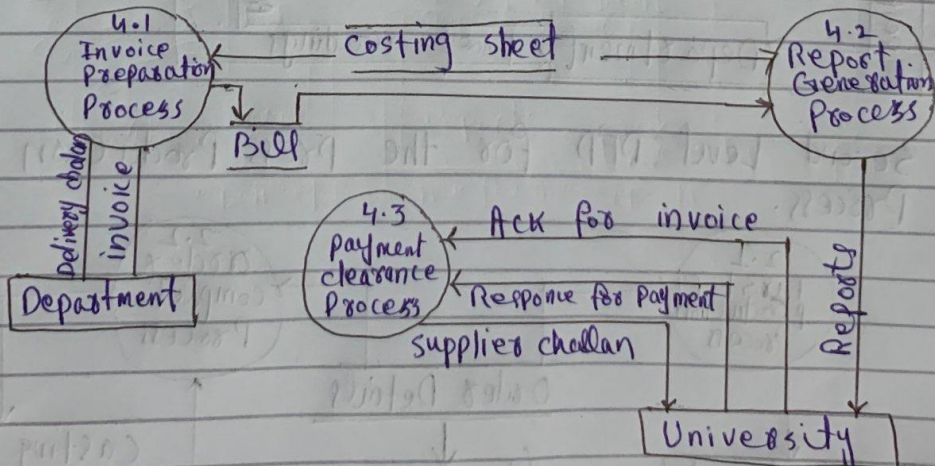 4.1
Invoice
Preparation
Process
Costing sheet
4.2
Report
Generation
Process
Bill
Delivery chalan
invoice
Department
4.3
payment
clearance
Process
Ack for invoice
Responce for payment
supplier challan
Reports
University